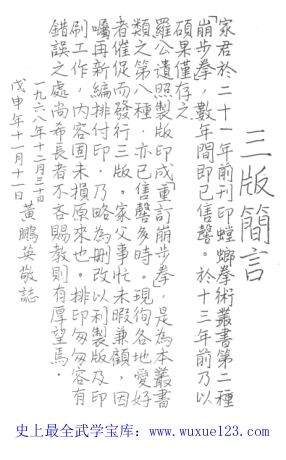 三版簡言
家君於二十一年前刊印螳螂拳術叢書第二種
「崩步拳」，數年間即已售罄。於十三年前乃以
碩果僅存之
羅公遺照製版印成「重訂崩步拳」，是為本叢書
類之第八種，亦已售罄多時。現徇各地愛好
者催促而發行三版。家父事忙未暇兼顧，因
囑再新編排付印，乃略為刪改以利製版及印
刷工作，內容固未損原來也。排印匆匆容有
錯誤之處尚希長者不吝賜教則有厚望焉。
一九六八年十二月三十日 黃鵬英敬誌
戊申年十一月十一日
史上最全武学宝库：www.wuxue123.com